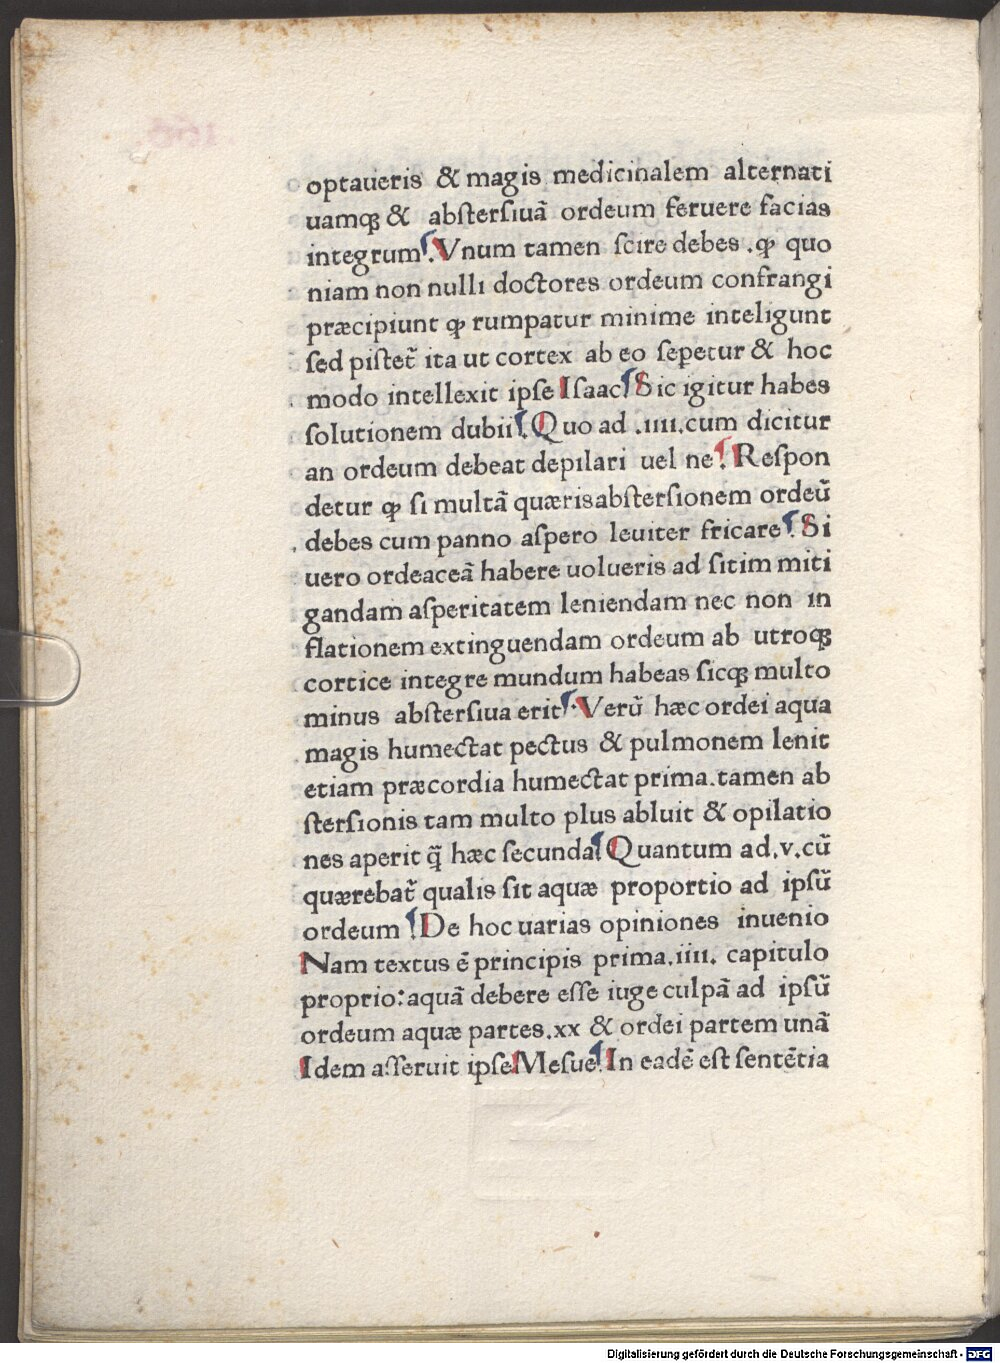 optaueris & magis medicinalem alternati
uamqꝫ & abſterſiuã ordeum feruere facias
integrum. Vnum tamen ſcire debes .ꝙ quo
niam non nulli doctores ordeum confrangi
præcipiunt ꝙ rumpatur minime inteligunt
ſed piſtet᷑ ita ut cortex ab eo ſepetur & hoc
modo intellexit ipſe Iſaac. Sic igitur habes
ſolutionem dubii. Quo ad .iiii.cum dicitur
an ordeum debeat depilari uel ne. Reſpon
detur ꝙ ſi multã quæris abſterſionem ordeũ
debes cum panno aſpero leuiter fricare. Si
uero ordeaceã habere uolueris ad ſitim miti
gandam aſperitatem leniendam nec non in
flationem extinguendam ordeum ab utroqꝫ
cortice integre mundum habeas ſicqꝫ multo
minus abſterſiua erit. Verũ hæc ordei aqua
magis humectat pectus & pulmonem lenit
etiam præcordia humectat prima.tamen ab
ſterſionis tam multo plus abluit & opilatio
nes aperit q̃ hæc ſecunda. Quantum ad.v.cũ
quærebat᷑ qualis ſit aquæ proportio ad ipſũ
ordeum. De hoc uarias opiniones inuenio
Nam textus ẽ principis prima.iiii. capitulo
proprio:aquã debere eſſe iuge culpã ad ipſũ
ordeum aquæ partes.xx & ordei partem unã
Idem aſſeruit ipſe Meſue. In eadẽ eſt ſentẽtia
Digitalisierung gefördert durch die Deutsche Forschungsgemeinschaft - DFG